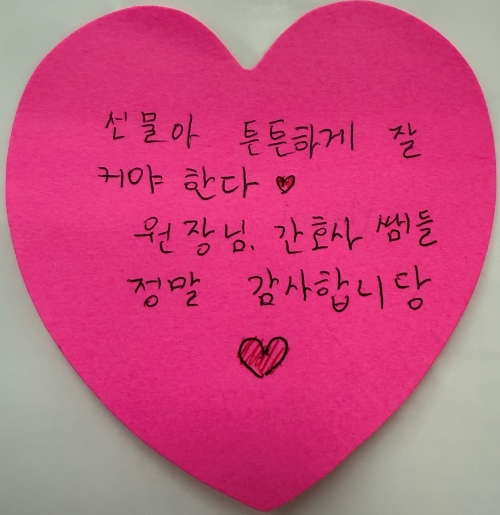 선물아 튼튼하게 잘
커야 한다 ♥
원장님, 간호사 쌤들
정말 감사합니당
♥